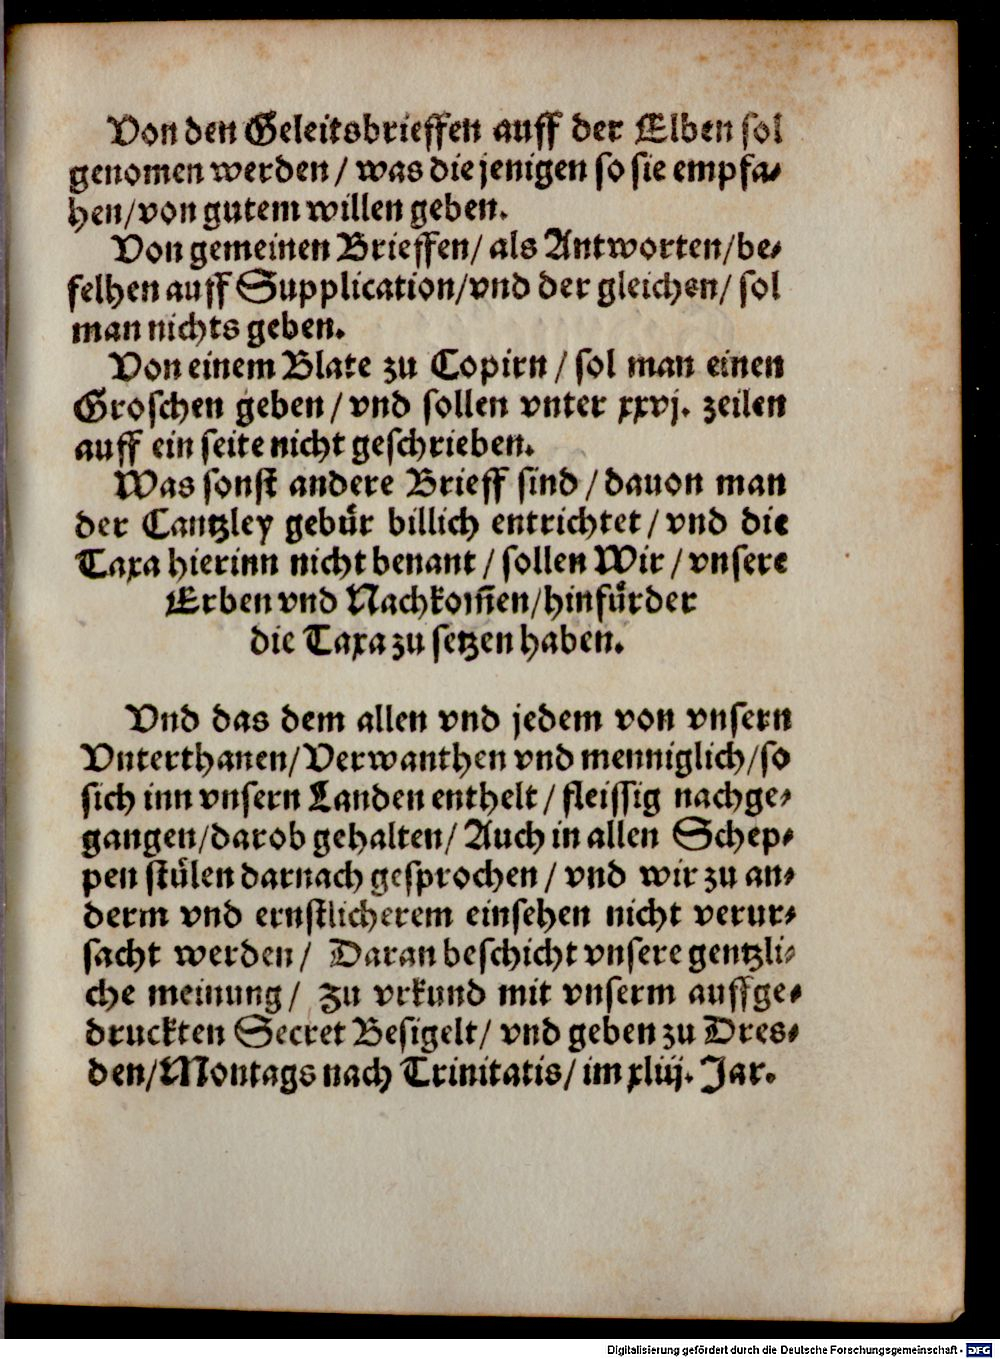 Von den Geleitsbrieffen auff der Elben sol
genomen werden / was die jenigen so sie empfa-
hen/von gutem willen geben.
Von gemeinen Brieffen/ als Antworten/be-
felhen auff Supplication/vnd der gleichen/ sol
man nichts geben.
Von einem Blate zu Copirn / sol man einen
Groschen geben/vnd sollen vnter xxvj. zeilen
auff ein seite nicht geschrieben.
Was sonst andere Brieff sind / dauon man
der Cantzley gebuͤr billich entrichtet/vnd die
Taxa hierinn nicht benant / sollen Wir / vnsere
Erben vnd Nachkom̄en/hinfuͤrder
die Taxa zu setzen haben.
Vnd das dem allen vnd jedem von vnsern
Vnterthanen/Verwanthen vnd menniglich/so
sich inn vnsern Landen enthelt / fleissig nachge-
gangen/darob gehalten/ Auch in allen Schep-
pen stuͤlen darnach gesprochen / vnd wir zu an-
derm vnd ernstlicherem einsehen nicht verur-
sacht werden/ Daran beschicht vnsere gentzli-
che meinung/ Zu vrkund mit vnserm auffge-
druckten Secret Besigelt/ vnd geben zu Dres-
den/Montags nach Trinitatis/ im xliij. Jar.
Digitalisierung gefördert durch die Deutsche Forschungsgemeinschaft - DFG